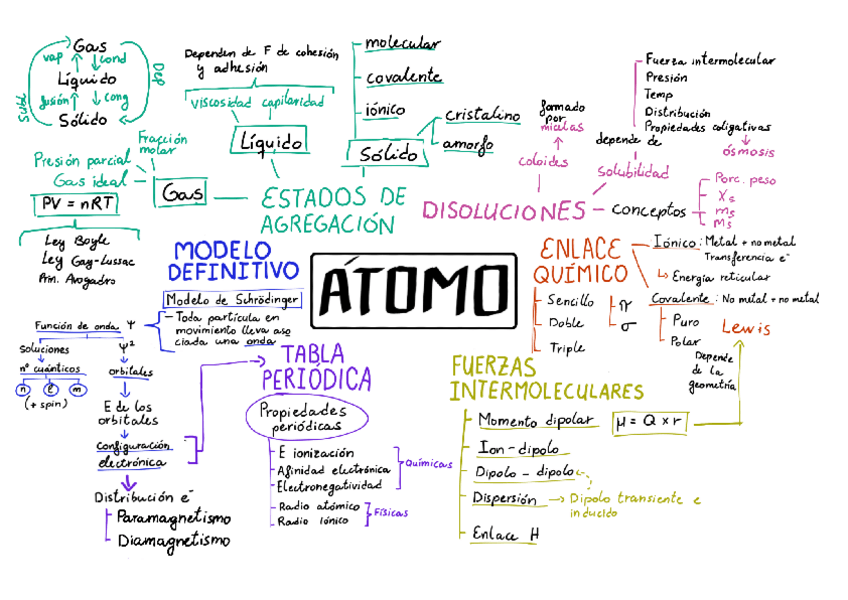 Gas
vap
cond
Líquido
fusión
cong
Sólido
Subl
Dep
Dependen de F de cohesión
y adhesión
viscosidad capilaridad
Líquido
molecular
covalente
iónico
cristalino
amorfo
Sólido
Fracción
molar
Presión parcial
Gas ideal
Gas
PV = nRT
Ley Boyle
Ley Gay-Lussac
Prin. Avogadro
ESTADOS DE
AGREGACIÓN
formado
por
micelas
coloides
DISOLUCIONES
Fuerza intermolecular
Presión
Temp
Distribución
Propiedades coligativas
ósmosis
depende de
solubilidad
conceptos
Porc. peso
Xs
ms
Ms
MODELO
DEFINITIVO
Modelo de Schrödinger
- Toda partícula en
movimiento lleva aso
ciada una onda
Función de onda Ψ
soluciones
nº cuánticos
n l m
(+ spin)
Ψ²
orbitales
E de los
orbitales
configuración
electrónica
Distribución e⁻
Paramagnetismo
Diamagnetismo
ÁTOMO
TABLA
PERIÓDICA
Propiedades
periódicas
E ionización
Afinidad electrónica
Electronegatividad
Químicas
Radio atómico
Radio iónico
Físicas
ENLACE
QUÍMICO
Sencillo
Doble
Triple
π
σ
Iónico : Metal + no metal
Transferencia e⁻
Energía reticular
Covalente : No metal + no metal
Puro
Polar
Lewis
Depende
de la
geometría
FUERZAS
INTERMOLECULARES
Momento dipolar
μ = Q x r
Ion - dipolo
Dipolo - dipolo
Dispersión → Dipolo transiente e
inducido
Enlace H